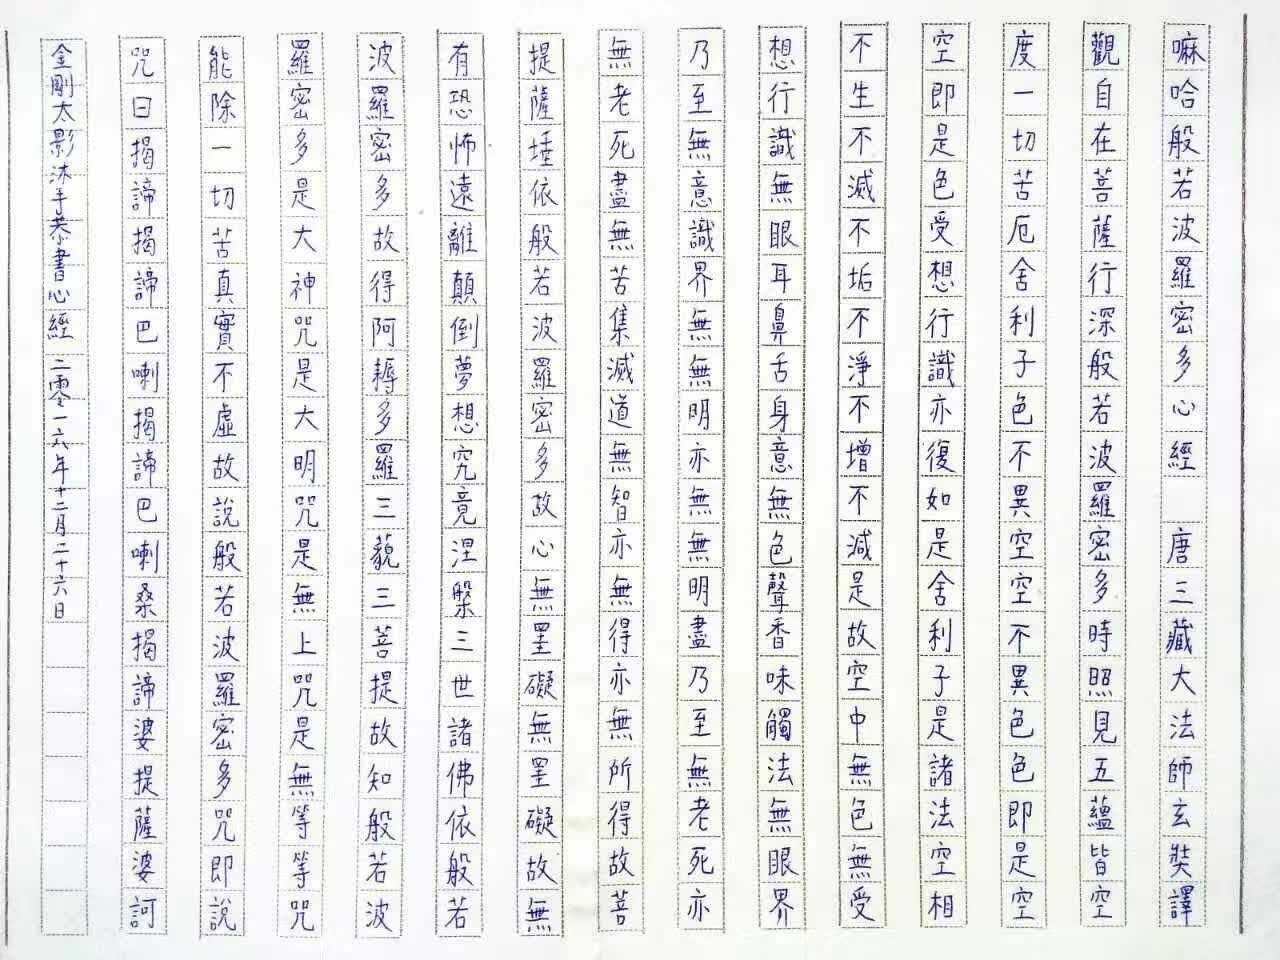 嘛哈般若波羅密多心經 唐三藏大法師玄奘譯
觀自在菩薩行深般若波羅密多時照見五蘊皆空
度一切苦厄舍利子色不異空空不異色色即是空
空即是色受想行識亦復如是舍利子是諸法空相
不生不滅不垢不淨不增不減是故空中無色無受
想行識無眼耳鼻舌身意無色聲香味觸法無眼界
乃至無意識界無無明亦無無明盡乃至無老死亦
無老死盡無苦集滅道無智亦無得亦無所得故菩
提薩埵依般若波羅密多故心無罣礙無罣礙故無
有恐怖遠離顛倒夢想究竟涅槃三世諸佛依般若
波羅密多故得阿耨多羅三藐三菩提故知般若波
羅密多是大神咒是大明咒是無上咒是無等等咒
能除一切苦真實不虛故說般若波羅密多咒即說
咒曰揭諦揭諦巴喇揭諦巴喇桑揭諦婆提薩婆訶
金剛太影沐手恭書心經 二零一六年十二月二十六日